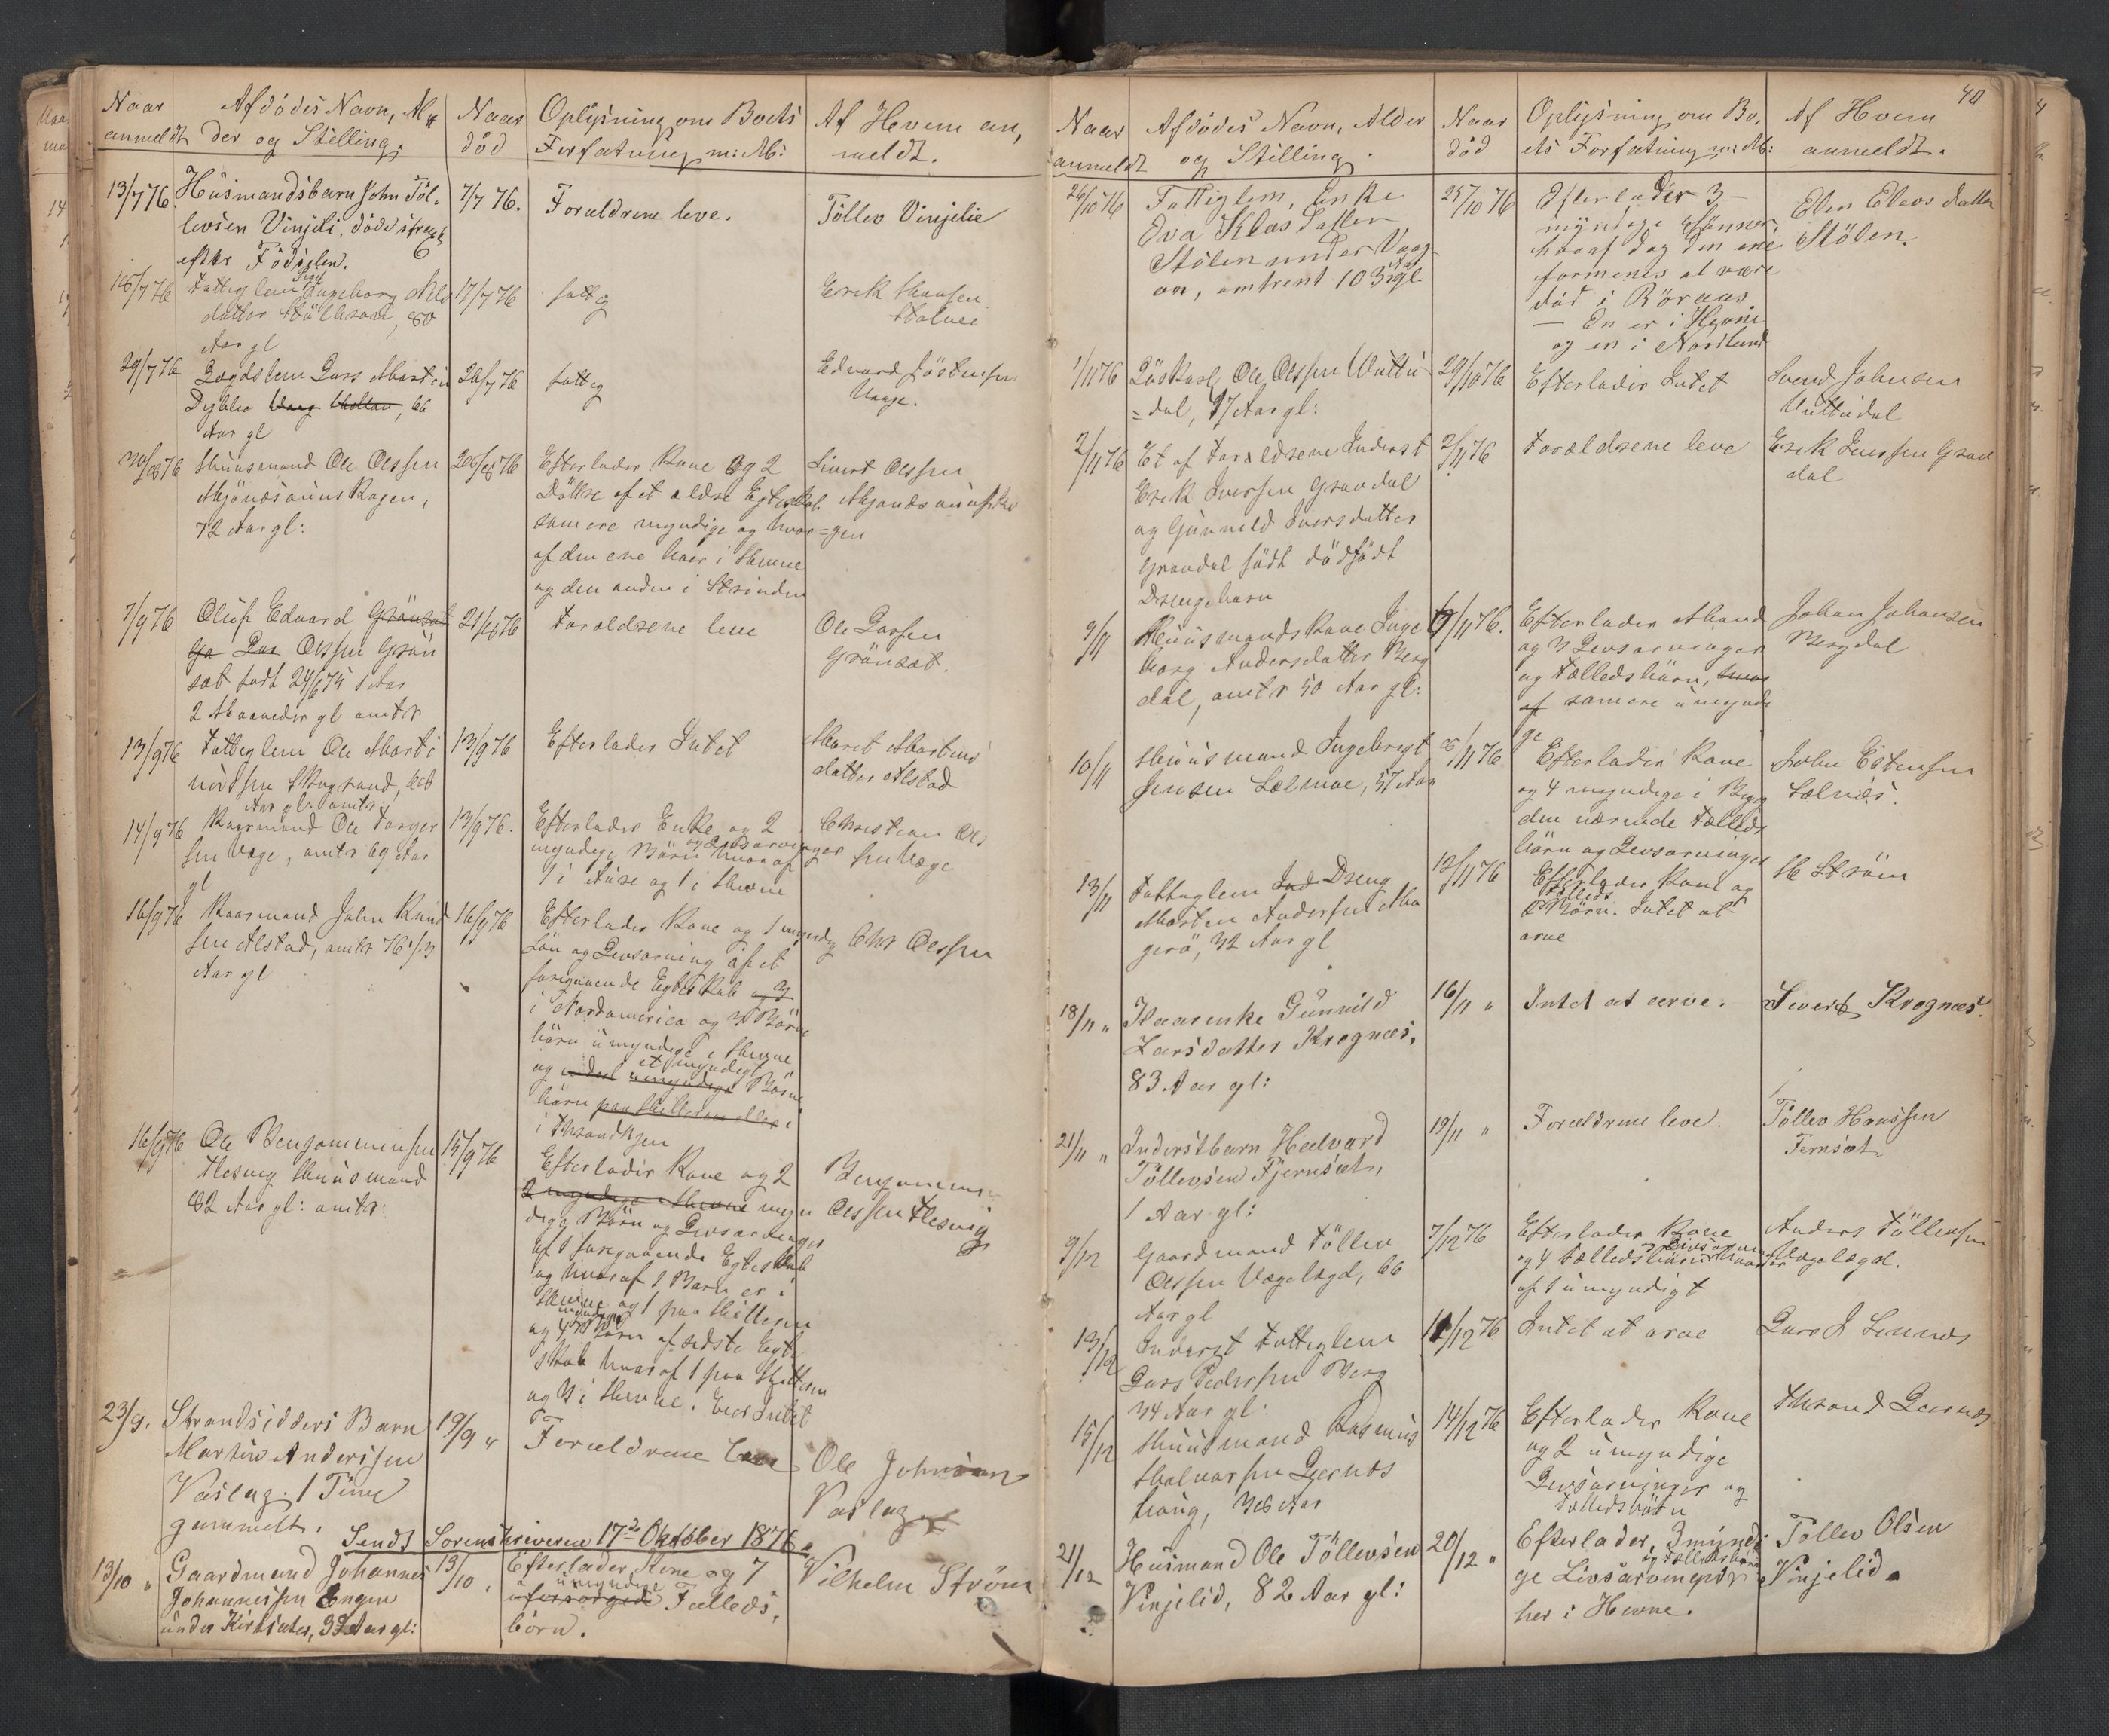 Naar anmeldt
Afdödes Navn, Al
der og Stilling.
Naar död
Oplysning om Boets
Forfatning m: M:
Af Hvem an,
meldt.
13/7 76.
Husmandsbarn John Töl.
levsen Vinjeli. döde strax
efter Födselen.
7/7 76.
Forældrene leve.
Töllev Vinjelie
18/7 76
Fatteglem Ingeborg Nils
datter 80
Aar gl
17/7 76
fatteg
Erik Hansen
29/7 76
Lægdslem Lars Martin
66
Aar gl
26/7 76
fatteg
Edvard Jöstensen
Vaage.
Huusmand Ole Olssen
72 Aar gl:
Efterlader Kone og 2
Döttre af et ældre Egteskab
som ere myndige og hvor
af den ene boer i Hevne
og den anden i Strinden
Sivert Olssen
7/9 76
Oluf Edvard
Olssen Grön
sæt født 24/6 75 1 Aar
2 Maaneder gl omtr
Forældrene leve
Ole Larsen
Grönsæt.
13/9 76
Fatteglem Ole Marti
nussen Skagrand,
Aar gl. omtr.
13/9 76
Efterlader Intet
Marit Martins
datter Alstad
14/9 76
Kaarmand Ole Torger
sen Vage, omtr 69 Aar
gl
13/9 76.
Efterlader Enke og 2
myndige Börn og Livsarvinger hvoraf
1 i Aure og 1 i Hevne
Christian Ols
sen Væge
16/9 76
Kaarmand John Knud
sen Alstad, omtr 76
Aar gl
16/9 76
Efterlader Kone og 1 myndig
Sön og Livsarving af et
foregaaende Egteskab
i Nordamerica og 3 Börne
börn umyndige i Hevne
og et myndigt Börne
börn
i Throndhjem
Chr Olssen
16/9 76
Ole Benjaminsen
Hesvig Huusmand
82 Aar gl: omtr:
15/9 76
Efterlader Kone og 2
myn
dige Börn og Livsarvinger
af 1 foregaaende Egteskab
og hvoraf 1 Barn er i
Hevne og 1 paa Hitteren
og 4 myndige Börn af sidste Egte
skab hvoraf 1 paa Hitteren
og 3 i Hevne. Eier Intet
Benjamin
Olssen Hesvig
23/9.
Strandsidders Barn
Martin Anderssen
Vaslag. 1 Time
gammelt.
19/9 "
Forældrene leve
Ole Johnsen
Vaslag
Sendt Sorenskriveren 17de Oktober 1876.
13/10 "
Gaardmand Johannes
Johannessen Engen
under Kirksæter, 39 Aar gl:
13/10 "
Efterlader Kone og 7
umyndige
uforsörgede Fælleds,
börn.
Vilhelm Ström
40
Naar
anmeldt
Afdödes Navn, Alder
og Stilling.
Naar
död
Oplysning om Bo,
ets Forfatning m: M:
Af Hvem
anmeldt.
26/10 76
Fattiglem, Enke
Eva Klasdatter
Stölen under Vaag
an, omtrent 103 Aar gl.
25/10 76
Efterlader 3
myndige Sönner
hvoraf dog den ene
formenes at være
död i Röraas.
— En er i Hevne
og en i Nordland
Elen Elevsdatter
Stölen.
1/11 76
Löskarl Ole Olssen Vuttu
=dal, 17 Aar gl:
29/10 76
Efterlader Intet
Svend Johnsen
Vuttudal
2/11 76
Et af Forældrene Inderst
Erik Iverssen Gravdal
og Gunnild Iversdatter
Gravdal födt dödfödt
Drengebarn
2/11 76
Forældrene leve
Erik Iverssen Grav
dal
9/11
Huusmandskone Inge
borg Andersdatter Berg
dal, omtr 50 Aar gl:
9/11 76.
Efterlader Mand
og 3 Livsarvinger
og Fælledsbörn, hvor
af som ere umyndi
ge
Johan Johansen
Bergdal
10/11
Huusmand Ingebrigt
Jensen Sælmoe, 57 Aar
8/11 76
Efterlader Kone
og 4 myndige i Byg
den værende Fælleds
börn og Livsarvinger
John Estensen
Sælnæs.
13/11
Fatteglem Dreng
Morten Andersen Ma
gerö, 32 Aar gl
12/11 76
Efterlader Kone og
Fælleds
Börn. Intet at
arve
H Ström
18/11 "
Kaarenke Gunnild
Larsdatter Krognæs,
83 Aar gl:
16/11 "
Intet at arve.
Sivert Krognæs.
21/11 "
Inderstbarn Hedvard
Töllevsen Fjernsæt,
1 Aar gl:
19/11 "
Forældrene leve.
Töllev Hanssen
Fernsæt.
9/12
Gaardmand Töllev
Olssen Vægelægd, 66
Aar gl
7/12 76
Efterlader Kone
og 4 Fælledsbörn og Livsarvinger hvor
af 1 umyndigt
Anders Töllevsen
Vægelægd.
13/12
Inderst Fatteglem
Lars Pedersen Berg
34 Aar gl:
11/12 76
Intet at arve
Lars J
15/12
Huusmand Rasmus
Halvorsen Lernes
haug, 36 Aar
14/12 76
Efterlader Kone
og 2 umyndige
Livsarvinger og
Fælledsbörn
Thrond Lernæs
21/12
Husmand Ole Töllevsen
Vinjelid, 82 Aar gl:
20/12 "
Efterlader, 3 myndi
ge Livsarvinger og Fælledsbörn
her i Hevne.
Tollev Olsen
Vinjelid.